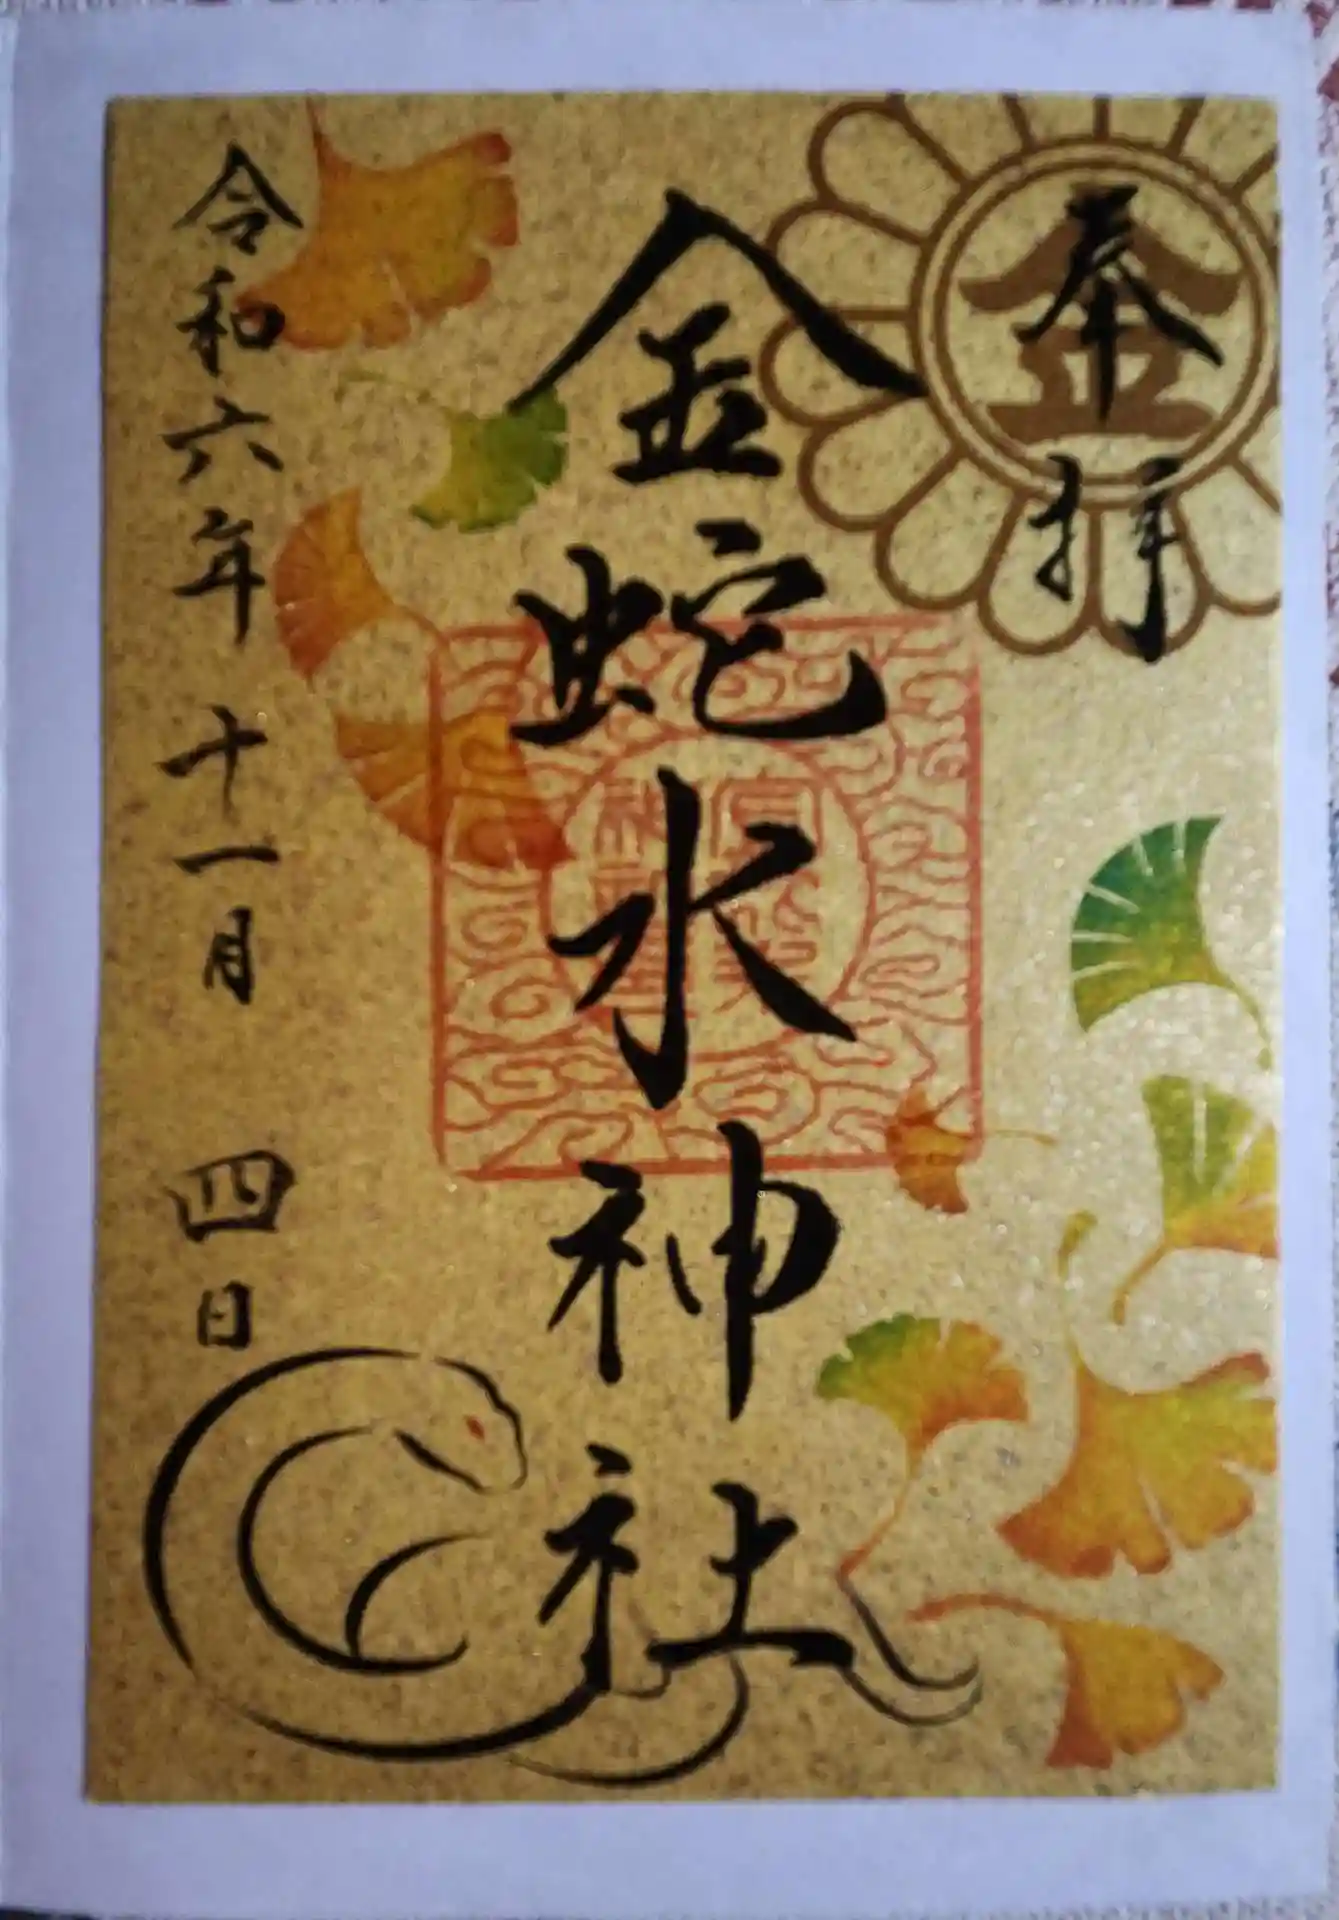 奉拝
金
金蛇水神社
令和六年 十一月 四日